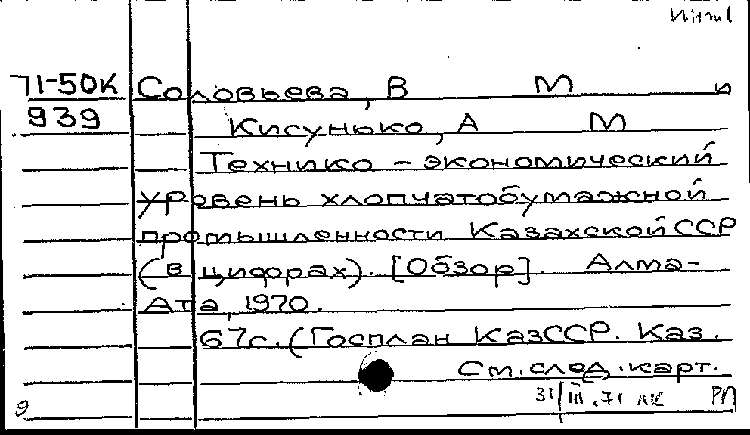 71-50К Соловьева, В М и
939 Кисунько, А М
Технико-экономический
уровень хлопчатобумажной
промышленности Казахской ССР
(в цифрах). [Обзор]. Алма-
Ата, 1970.
67с. (Госплан КазССР. Каз.
См. след. карт.
31/III.71 РП
9